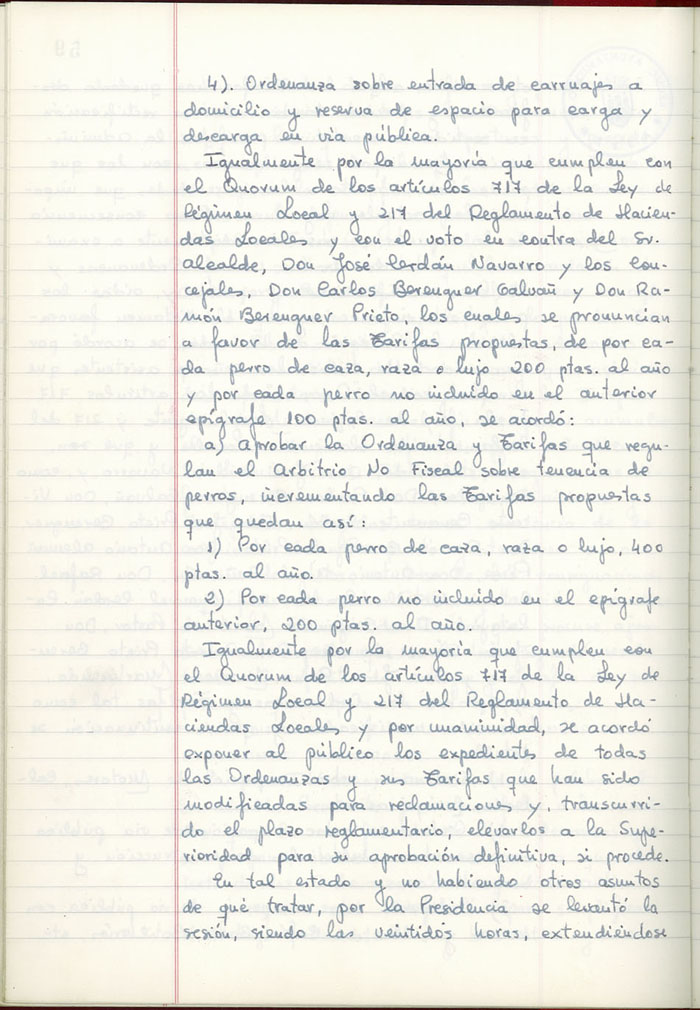 4). Ordenanza sobre entrada de carruajes a
domicilio y reserva de espacio para carga y
descarga en vía pública.
Igualmente por la mayoría que cumplen con
el Quorum de los artículos 717 de la Ley de
Régimen Local y 217 del Reglamento de Hacien-
das Locales y con el voto en contra del Sr.
Alcalde, Don José Cerdán Navarro y los Con-
cejales, Don Carlos Berenguer Galvañ y Don Ra-
món Berenguer Prieto, los cuales se pronuncian
a favor de las Tarifas propuestas, de por ca-
da perro de caza, raza o lujo 200 ptas. al año
y por cada perro no incluido en el anterior
epígrafe 100 ptas. al año, se acordó:
a) Aprobar la Ordenanza y Tarifas que regu-
lan el Arbitrio No Fiscal sobre tenencia de
perros, incrementando las Tarifas propuestas
que quedan así:
1) Por cada perro de caza, raza o lujo, 400
ptas. al año.
2) Por cada perro no incluido en el epígrafe
anterior, 200 ptas. al año.
Igualmente por la mayoría que cumplen con
el Quorum de los artículos 717 de la Ley de
Régimen Local y 217 del Reglamento de Ha-
ciendas Locales y por unanimidad, se acordó
exponer al público los expedientes de todas
las Ordenanzas y sus Tarifas que han sido
modificadas para reclamaciones y, transcurri-
do el plazo reglamentario, elevarlos a la Supe-
rioridad para su aprobación definitiva, si procede.
En tal estado y no habiendo otros asuntos
de qué tratar, por la Presidencia se levantó la
sesión, siendo las veintidós horas, extendiéndose